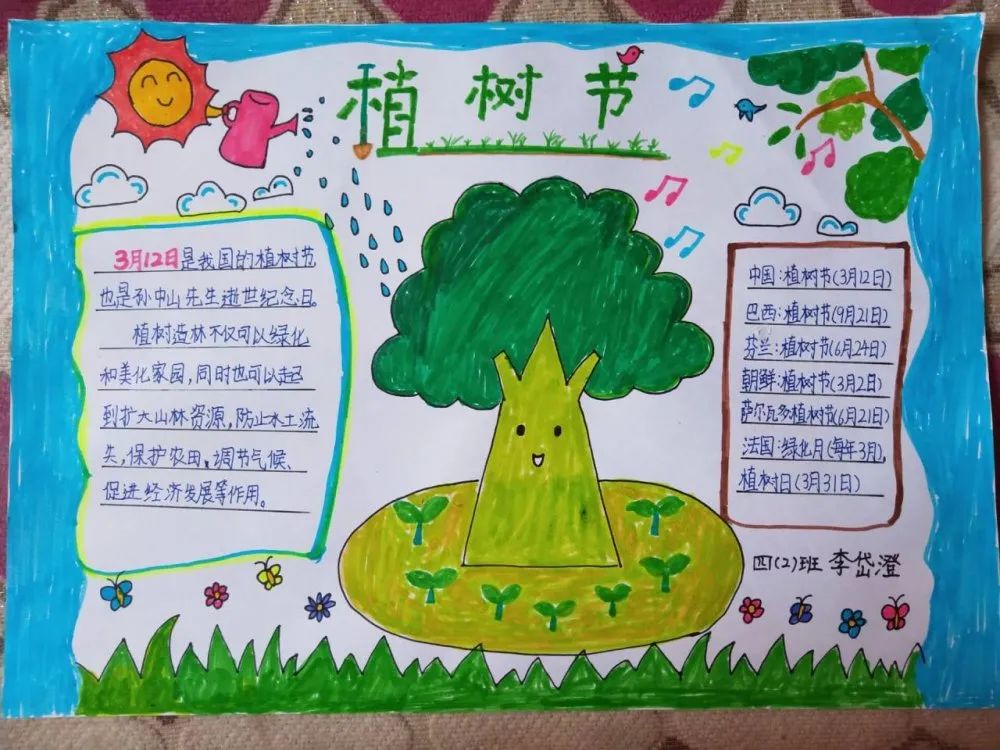 植树节
3月12日是我国的植树节
也是孙中山先生逝世纪念日。
植树造林不仅可以绿化
和美化家园,同时也可以起
到扩大山林资源,防止水土流
失,保护农田、调节气候、
促进经济发展等作用。
中国:植树节(3月12日)
巴西:植树节(9月21日)
芬兰:植树节(6月24日)
朝鲜:植树节(3月2日)
萨尔瓦多植树节(6月21日)
法国:绿化月(每年3月),
植树日(3月31日)
四(2)班 李岱澄